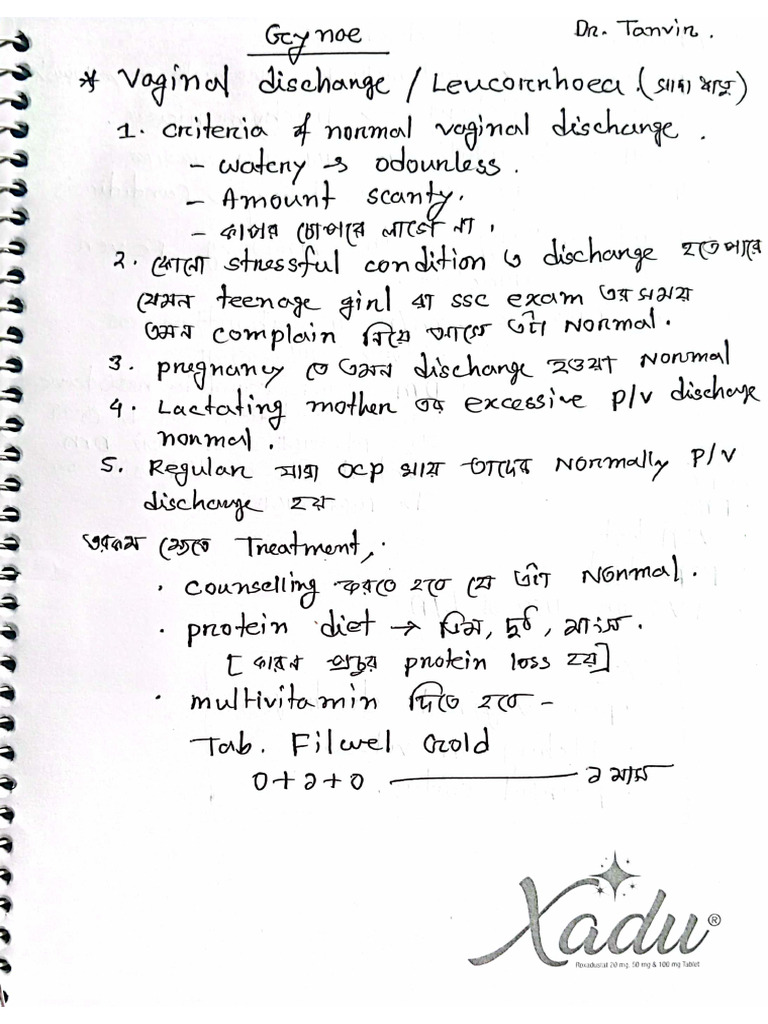 Gynae
Dr. Tanvir.
* Vaginal discharge / Leucorrhoea. (সাদা স্রাব)
1. criteria of normal vaginal discharge.
- watery ও odourless.
- Amount scanty.
- কাপড় চোপড়ে লাগে না।
2. কোনো stressful condition ও discharge হতে পারে
যেমন teenage girl বা ssc exam এর সময়
এমন complain নিয়ে আসে এটা Normal.
3. pregnancy তে এমন discharge হওয়া Normal
4. Lactating mother এর excessive p/v discharge
normal.
5. Regular যারা ocp খায় তাদের Normally p/v
discharge হয়
এরকম ক্ষেত্রে Treatment,
• counselling করতে হবে যে এটা Normal.
• protein diet → ডিম, দুধ, মাংস.
[কারন প্রচুর protein loss হয়]
• multivitamin দিতে হবে -
Tab. Filwel Gold
0+১+0 ——— ১ মাস
Xadu®
Roxadustat 20 mg, 50 mg & 100 mg Tablet